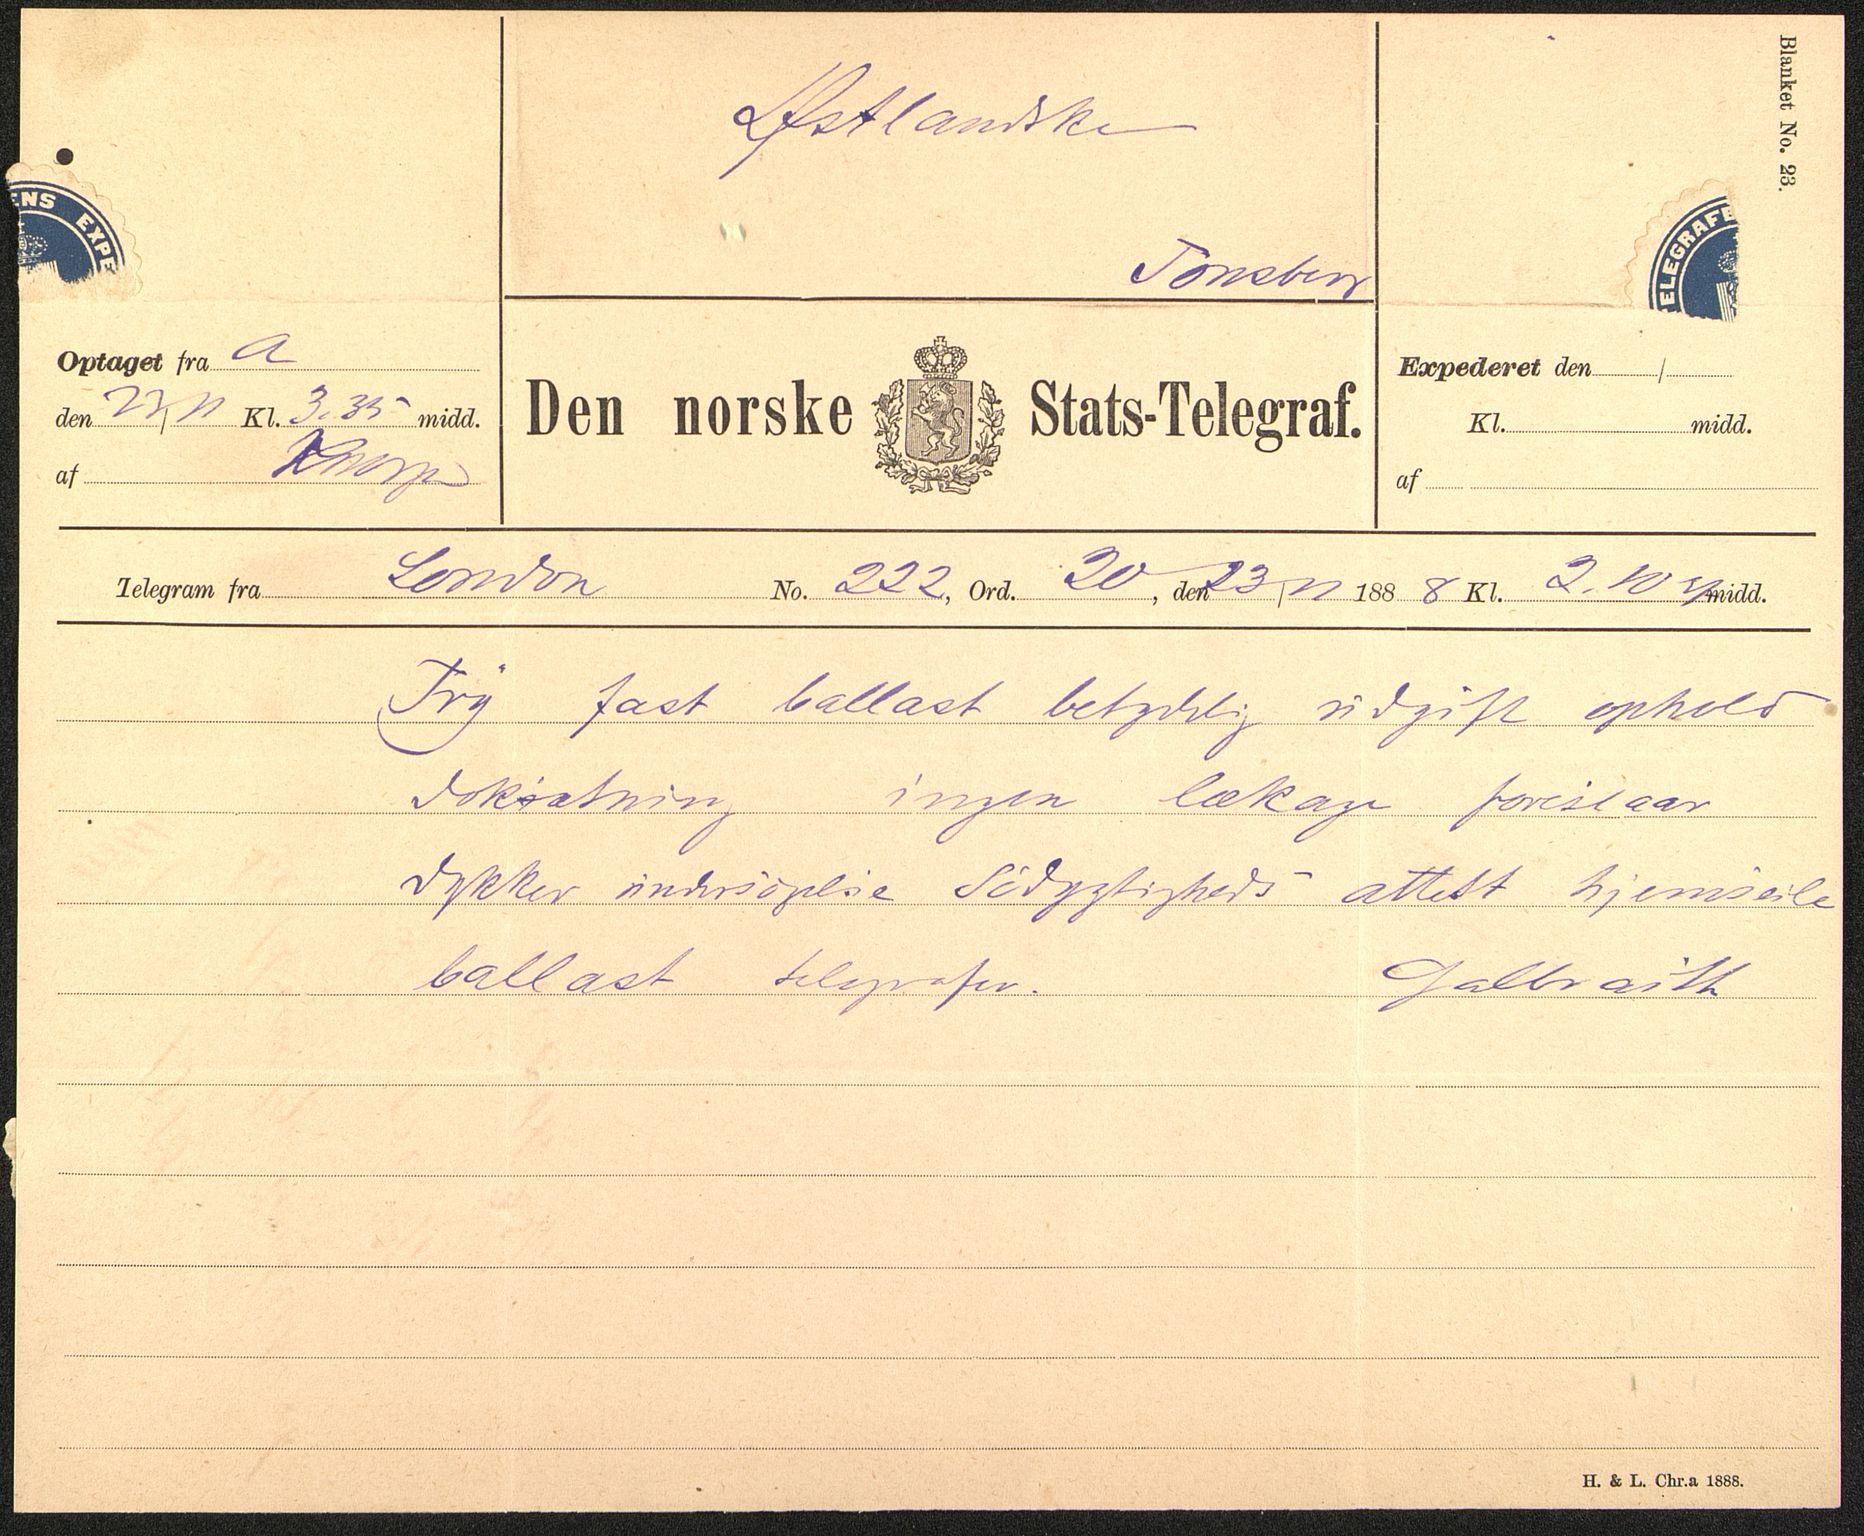 Blanket No. 23.
Østlandske
Tönsberg
ENS EXPE
TELEGRAFE
Optaget fra a
den 23/11 Kl. 3.35 midd.
af
Den norske Stats-Telegraf.
Expederet den /
Kl. midd.
af
Telegram fra London No. 222, Ord. 20, den 23/11 1888 Kl. 2.10 midd.
fast ballast betydelig udgift ophold
doksætning ingen lækage foreslaar
dykker undersögelse Södygtigheds attest hjemseile
ballast telegrafer. Galbraith
H. & L. Chr.a 1888.